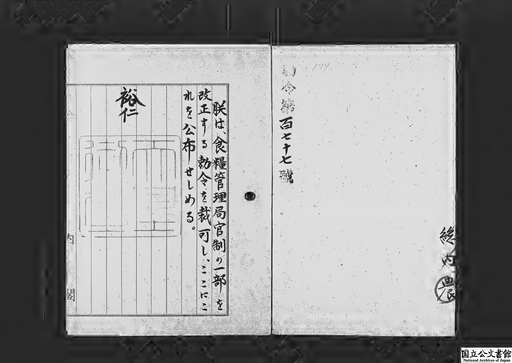 勅令第百七十七號
総 内 農
朕は、食糧管理局官制の一部を
改正する勅令を裁可し、ここにこ
れを公布せしめる。
裕仁
内閣
国立公文書館
National Archives of Japan